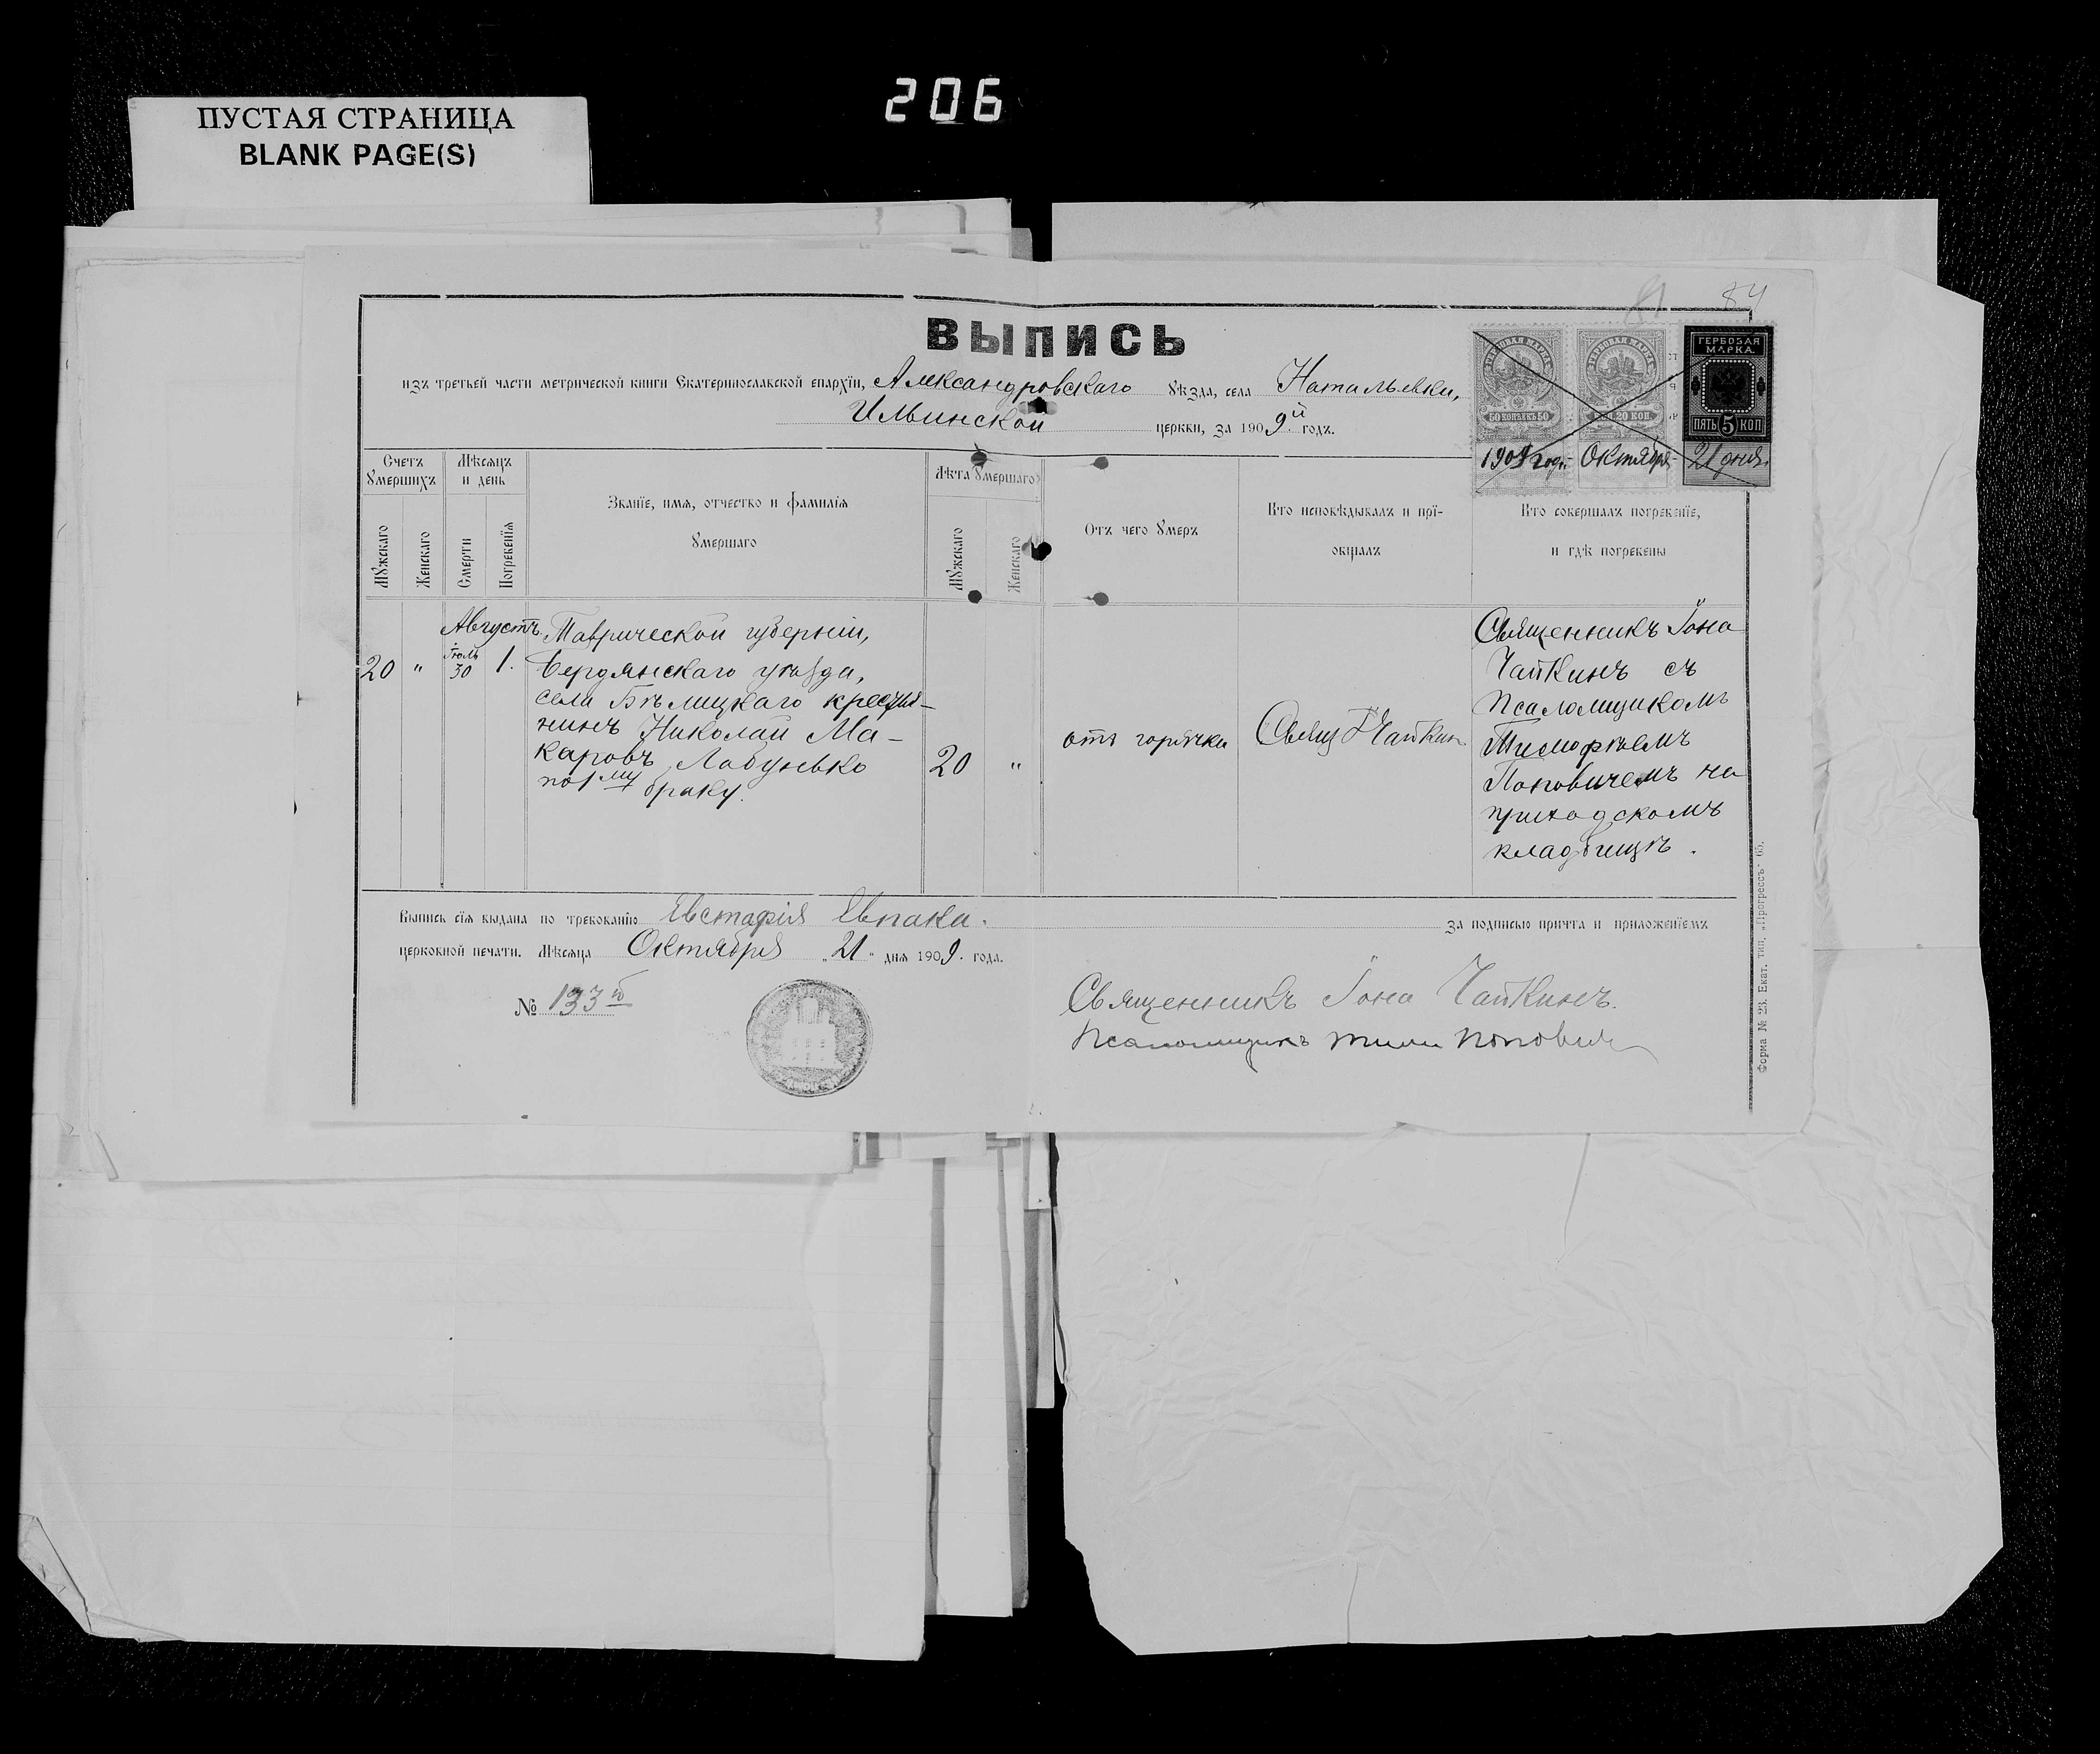 206
ПУСТАЯ СТРАНИЦА
BLANK PAGE(S)
84
ВЫПИСЬ
изъ третьей части метрической книги Екатеринославской епархіи, Александровскаго уѣзда, села Натальевки,
Ильинской церкви, за 1909й годъ.
ГЕРБОВАЯ МАРКА
50 КОПѢЕКЪ 50
ГЕРБОВАЯ МАРКА
20 КОП.
ГЕРБОВАЯ
МАРКА
ПЯТЬ 5 КОП
1909 годъ Октября 21 дня
Счетъ умершихъ
Мужскаго
Женскаго
Мѣсяцъ и день
Смерти
Погребенія
Званіе, имя, отчество и фамилія
умершаго
Лѣта умершаго
Мужскаго
Женскаго
Отъ чего умеръ
Кто исповѣдывалъ и прі-
общалъ
Кто совершалъ погребеніе,
и гдѣ погребены
20
"
Августъ
Іюль
30
1.
Таврической губерніи,
Бердянскаго уѣзда,
села Бѣлицкаго крестья-
нинъ Николай Ма-
каровъ Лабунько
по 1му браку.
20
"
отъ горячки
Свящ. І. Чайкинъ
Священникъ Іона
Чайкинъ съ
Псаломщикомъ
Тимофѣемъ
Поповичемъ на
приходскомъ
кладбищѣ.
Выпись сія выдана по требованію Евстафія Евпака. за подписью причта и приложеніемъ
церковной печати. Мѣсяца Октября „21" дня 1909. года.
№ 133й
Священникъ Іона Чайкинъ.
Псаломщикъ Тим Поповичъ
Форма № 23. Екат. тип. „Прогрессъ" 65.